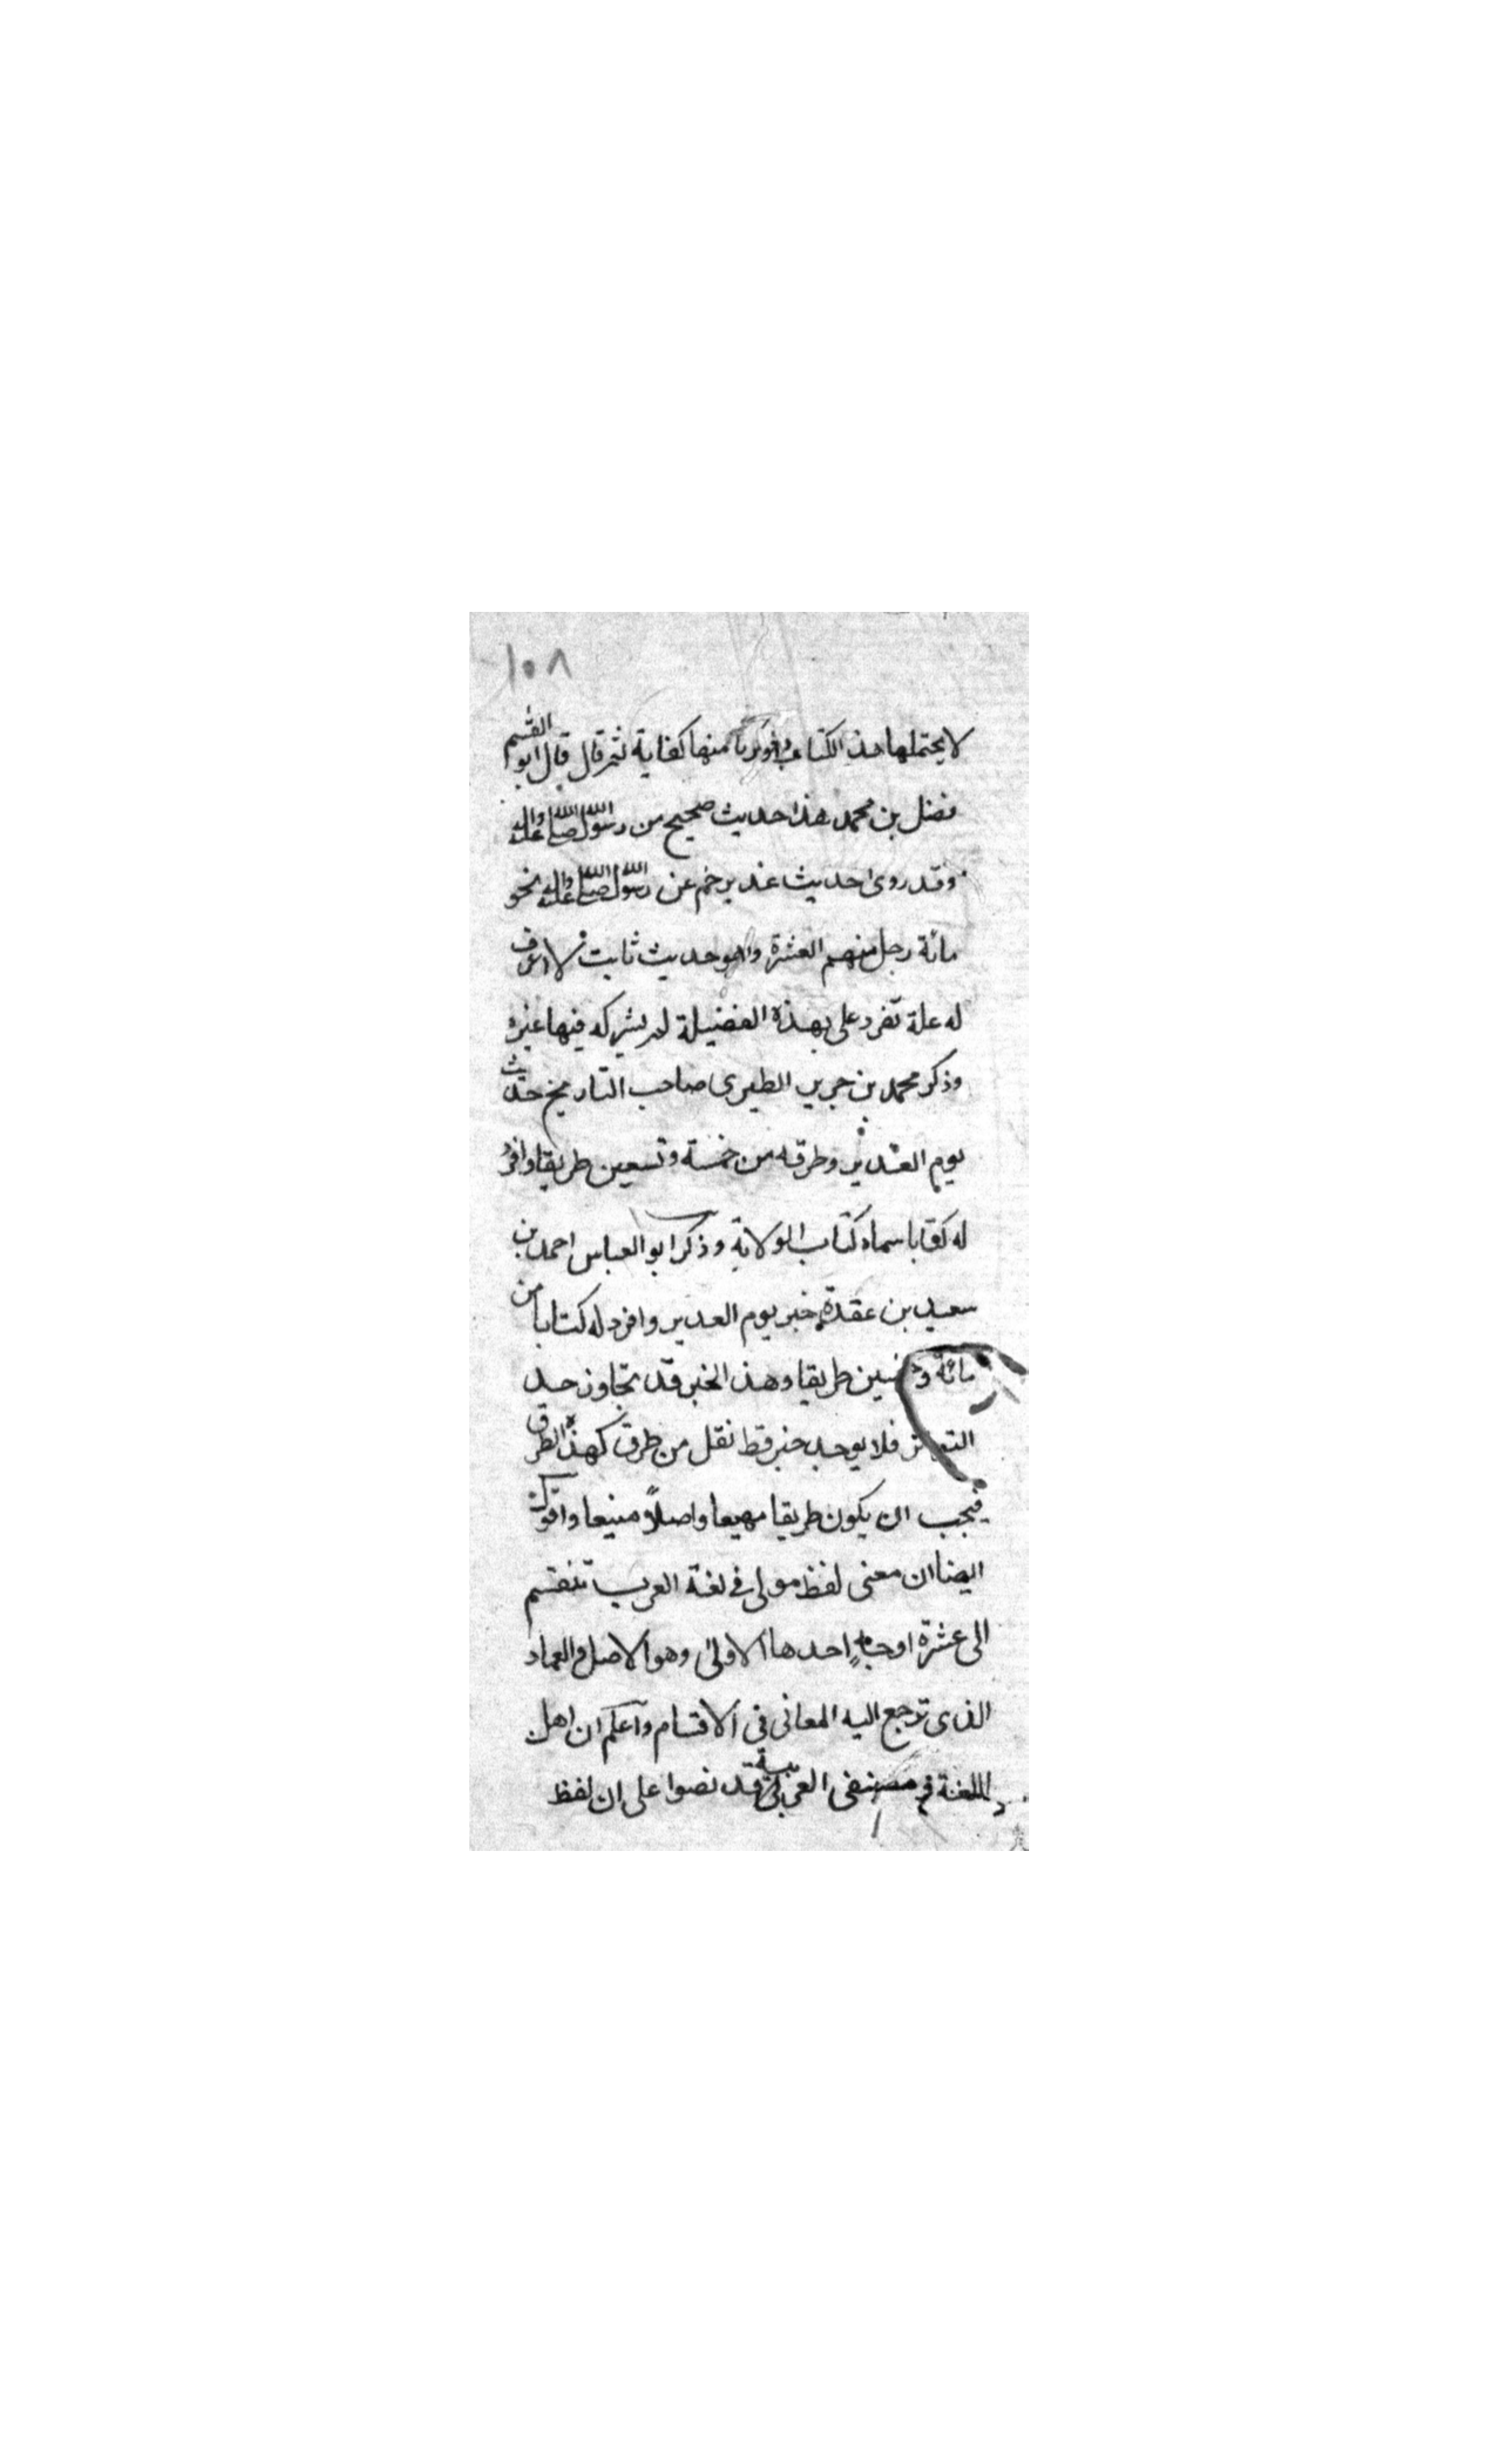 ١٠٨
لا يحتملها هذا الكتاب منها كفاية ثم قال قال ابو القسم
فضل بن محمد هذا حديث صحيح من رسول الله صلى الله عليه واله
وقد روى حديث غدير خم عن رسول الله صلى الله عليه واله نحو
مائة رجل منهم العشرة وهو حديث ثابت لا اعرف
له علة تفرد على بهذه الفضيلة لم يشركه فيها غيره
وذكر محمد بن جرير الطبرى صاحب التاريخ حديث
يوم الغدير وطرقه من خمسة وتسعين طريقا وافرد
له كتابا سماه كتاب الولاية وذكر ابو العباس احمد بن
سعيد بن عقدة خبر يوم الغدير وافرد له كتابا من
مائة طريقا وهذا الخبر قد تجاوز حد
التواتر فلا يوجد خبر قط نقل من طرق كهذه الطرق
فيجب ان يكون طريقا مهيعا واصلاً منيعا واقول
ايضا ان معنى لفظ مولى فى لغة العرب تنقسم
الى عشرة اوجه احدها الاولى وهو الاصل والعماد
الذى ترجع اليه المعانى فى الاقسام واعلم ان اهل
اللغة فى مصنفى العربية قد نصوا على ان لفظ